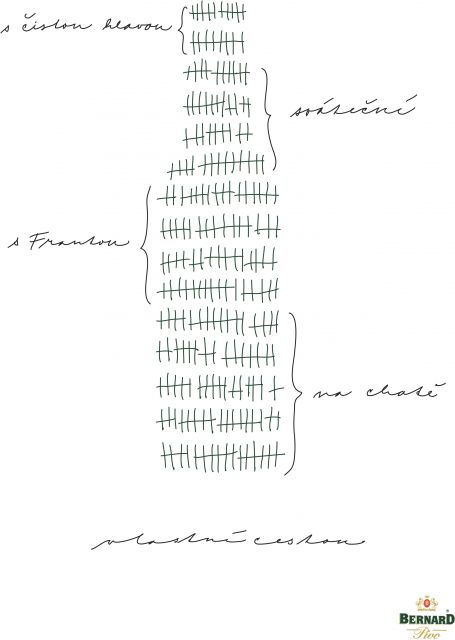 s čistou hlavou
sváteční
s Frantou
na chatě
vlastní cestou
BERNARD
Pivo